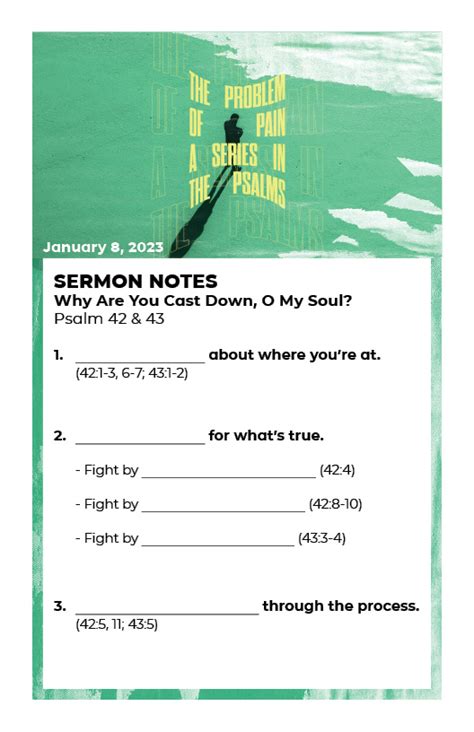 THE PROBLEM
OF PAIN
A SERIES IN
THE PSALMS
January 8, 2023
SERMON NOTES
Why Are You Cast Down, O My Soul?
Psalm 42 & 43
1. __________________ about where you're at.
(42:1-3, 6-7; 43:1-2)
2. __________________ for what's true.
- Fight by _________________________ (42:4)
- Fight by ________________________ (42:8-10)
- Fight by ______________________ (43:3-4)
3. _________________________ through the process.
(42:5, 11; 43:5)